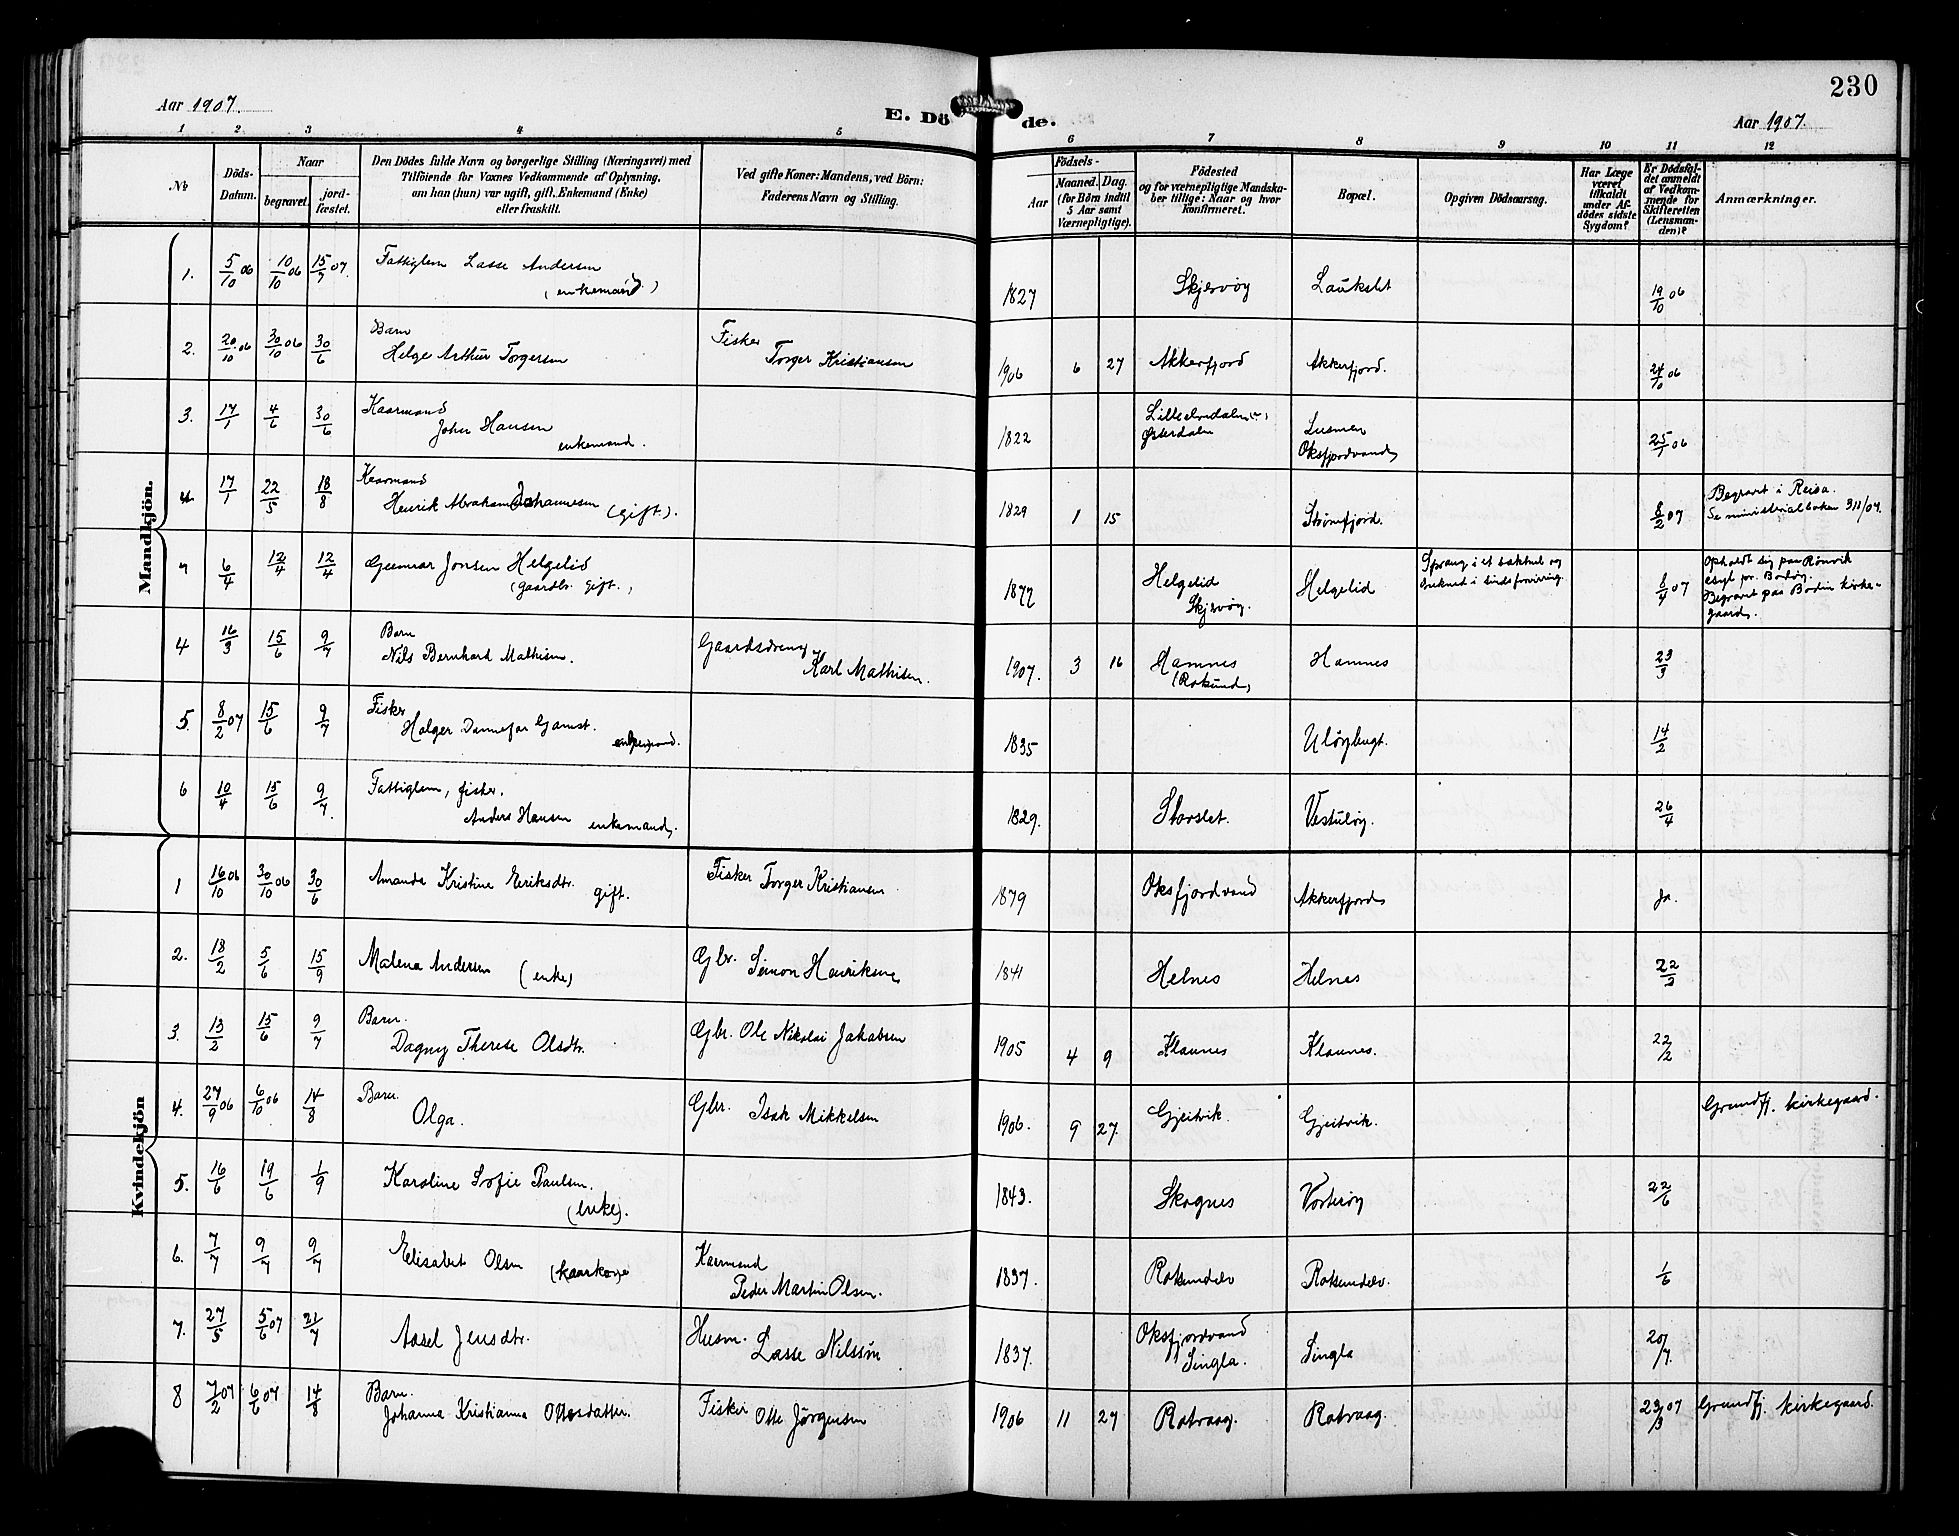 230
Aar 1907.
E. Döde.
Aar 1907.
1 2 3 4 5 6 7 8 9 10 11 12
№
Döds-Datum.
Naar
begravet.
jordfæstet.
Den Dödes fulde Navn og borgerlige Stilling (Næringsvei) med
Tilföiende for Voxnes Vedkommende af Oplysning,
om han (hun) var ugift, gift, Enkemand (Enke)
eller fraskilt.
Ved gifte Koner: Mandens, ved Börn:
Faderens Navn og Stilling.
Födsels-
Aar
Maaned. Dag.
(for Börn indtil
5 Aar samt
Værnepligtige).
Födested
og for værnepligtige Mandska-
ber tillige: Naar og hvor
konfirmeret.
Bopæl.
Opgiven Dödsaarsag.
Har Læge
været
tilkaldt
under Af-
dödes sidste
Sygdom?
Er Dödsfal-
det anmeldt
af Vedkom-
mende for
Skifteretten
(Lensman-
den)?
Anmærkninger.
Mandkjön.
1. 5/10 06 10/10 06 15/7 07. Fattiglem Lasse Andersen
(enkemand) 1827 Skjervøy Laukslet 19/10 06
2. 20/10 06 30/10 06 30/6 Barn
Helge Arthur Torgersen Fisker
Torger Kristiansen 1906 6 27 Akkerfjord Akkerfjord. 24/10 06
3. 17/1 4/6 30/6 Kaarmand
John Hansen
enkemand. 1822 Østerdalen
Oksfjordvand 25/1 06
4. 17/1 22/5 18/8 Kaarmand
Henrik Abraham Johannesen (gift). 1829 1 15 Straumfjord. 8/2 07 Begravet i Reisa.
Se ministerialboken 311/07.
7 6/4 12/4 12/4 Gunnar Jonsen Helgelid
(gaardbr. gift.) 1877 Helgelid
Skjervøy. Helgelid Sprang i et vakhul og
druknet i sindsforvirring. 8/4 07 Opholdt sig paa Rønvik
asyl pr. Bodø.
Begravet paa Bodin kirke-
gaard.
4 16/3 15/6 9/7 Barn
Nils Bernhard Mathisen. Gaardsdreng
Karl Mathisen. 1907. 3 16 Hamnes
(Rotsund) Hamnes 23/3
5. 8/2 07 15/6 9/7 Fisker
Holger Dannefar Gamst.
enkemand. 1835 Uløybugt. 14/2
6 10/4 15/6 9/7. Fattiglem, fisker.
Anders Hansen enkemand. 1829. Storslet. Vesterøy. 26/4
Kvindekjön
1 16/10 06 30/10 06 30/6 Amanda Kristine Eriksdtr. gift. Fisker Torger Kristiansen 1879 Oksfjordvand Akkerfjord Ja.
2. 18/2 5/6 15/9 Malena Andersen (enke) Gbr. Simon Henriksen 1841 Helnes Helnes 22/2
3. 13/2 15/6 9/7 Barn.
Dagny Therese Olsdtr. Gbr. Ole Nikolai Jakobsen 1905 4 9 Klaunes Klaunes. 22/2
4. 27/9 06 6/10 06 14/8 Barn.
Olga. Gbr. Isak Mikkelsen 1906. 9 27. Gjeitvik Gjeitvik. Grundfj. kirkegaard.
5. 16/6 19/6 1/9 Karoline Sofie Paulsen.
(enke). 1843. Skognes Vorterøy 22/6
6. 7/7 9/7 9/7 Elisabet Olsen (kaarkone) Kaarmand
Peder Martin Olsen. 1837. Rotsundelv Rotsundelv. 1/6
7. 27/5 5/6 07 21/7 Aasel Jensdtr. Husm.
Lasse Nilssøn 1837. Oksfjordvand
Singla. Singla 20/7.
8 7/2 07 6/6 07 14/8 Barn.
Johanna Kristianna Ottesdatter. Fisker
Otte Jørgensen 1906 11 27 Rotvaag. Rotvaag. 23/3 07 Grundfj. kirkegaard.